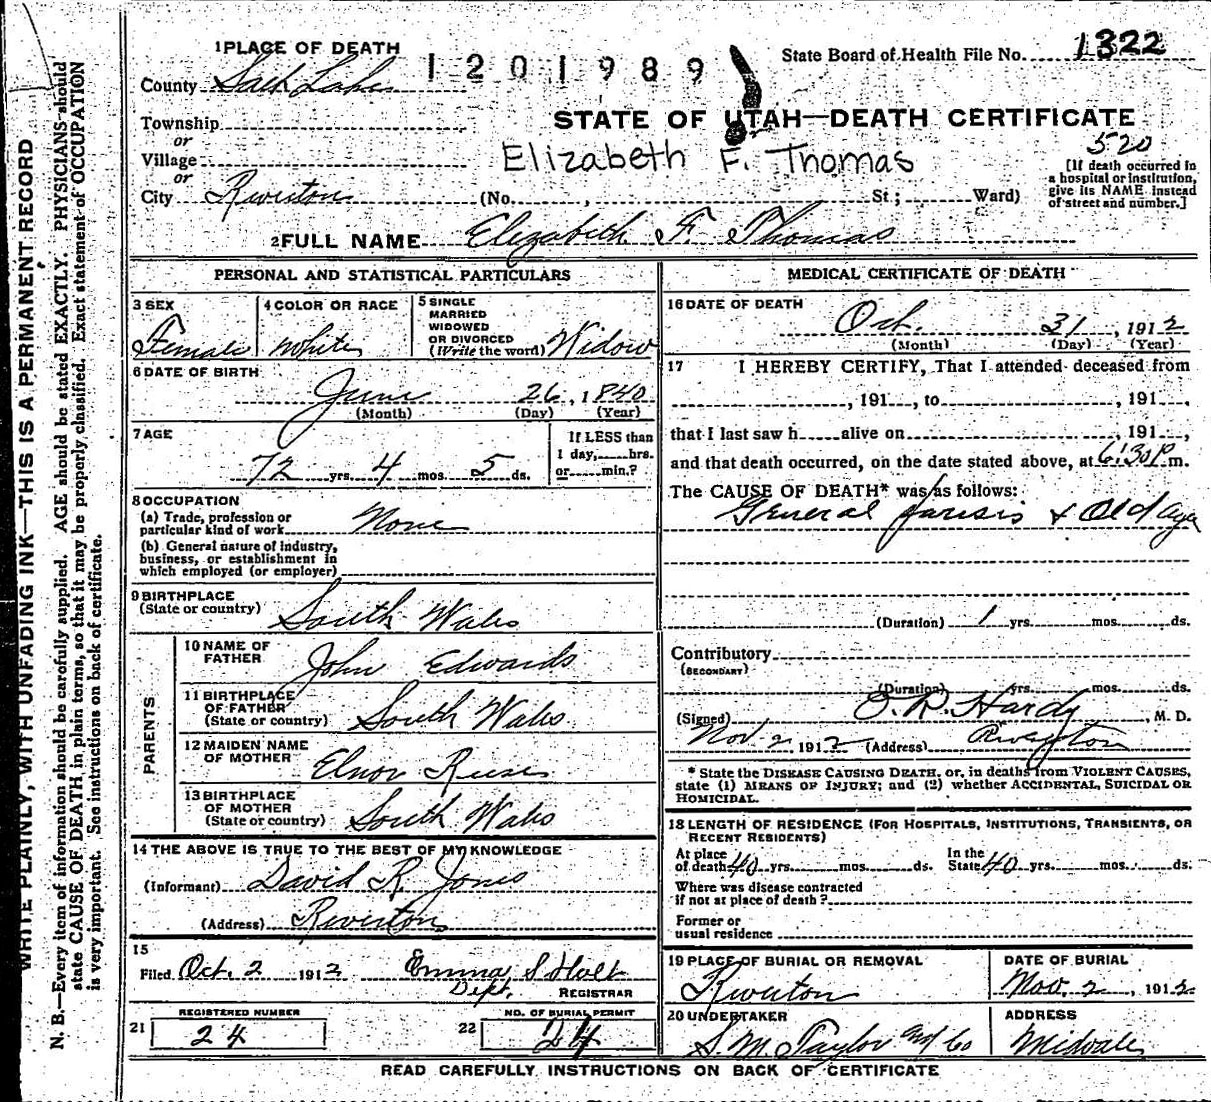 1 PLACE OF DEATH
1201989
State Board of Health File No. 1322
County Salt Lake
STATE OF UTAH—DEATH CERTIFICATE
Township
or
Village
or
Elizabeth F. Thomas
520
[If death occurred in
a hospital or institution,
give its NAME instead
of street and number.]
City Riverton (No. , St; Ward)
2 FULL NAME Elizabeth F. Thomas
PERSONAL AND STATISTICAL PARTICULARS
3 SEX
Female
4 COLOR OR RACE
White
5 SINGLE
MARRIED
WIDOWED
OR DIVORCED
(Write the word) Widow
6 DATE OF BIRTH
June 26, 1840
(Month) (Day) (Year)
7 AGE
72 yrs 4 mos. 5 ds.
If LESS than
1 day, hrs.
or min.?
8 OCCUPATION
(a) Trade, profession or
particular kind of work None
(b) General nature of industry,
business, or establishment in
which employed (or employer)
9 BIRTHPLACE
(State or country) South Wales
PARENTS
10 NAME OF
FATHER John Edwards
11 BIRTHPLACE
OF FATHER
(State or country) South Wales
12 MAIDEN NAME
OF MOTHER Elnor Reese
13 BIRTHPLACE
OF MOTHER
(State or country) South Wales
14 THE ABOVE IS TRUE TO THE BEST OF MY KNOWLEDGE
(Informant) David R. Jones
(Address) Riverton
15
Filed Oct. 2 1912 Emma S Holt
Dept. REGISTRAR
REGISTERED NUMBER
21 24
NO. OF BURIAL PERMIT
22 24
MEDICAL CERTIFICATE OF DEATH
16 DATE OF DEATH
Oct. 31, 1912
(Month) (Day) (Year)
17 I HEREBY CERTIFY, That I attended deceased from
, 191 , to , 191 ,
that I last saw h alive on 191 ,
and that death occurred, on the date stated above, at 6:30 P. m.
The CAUSE OF DEATH* was as follows:
General parisis & Old Age
(Duration) 1 yrs. mos. ds.
Contributory
(SECONDARY)
(Duration) yrs. mos. ds.
(Signed) O. R. Hardy, M. D.
Nov 2, 1912 (Address) Riverton
* State the DISEASE CAUSING DEATH, or, in deaths from VIOLENT CAUSES,
state (1) MEANS OF INJURY; and (2) whether ACCIDENTAL, SUICIDAL OR
HOMICIDAL.
18 LENGTH OF RESIDENCE (FOR HOSPITALS, INSTITUTIONS, TRANSIENTS, OR
RECENT RESIDENTS)
At place
of death 40 yrs. mos. ds.
In the
State 40 yrs. mos. ds.
Where was disease contracted
if not at place of death?
Former or
usual residence
19 PLACE OF BURIAL OR REMOVAL
Riverton
DATE OF BURIAL
Nov. 2, 1912
20 UNDERTAKER
S. M. Taylor and Co
ADDRESS
Midvale
READ CAREFULLY INSTRUCTIONS ON BACK OF CERTIFICATE
WRITE PLAINLY, WITH UNFADING INK—THIS IS A PERMANENT RECORD
N. B.—Every item of information should be carefully supplied. AGE should be stated EXACTLY. PHYSICIANS should
state CAUSE OF DEATH in plain terms, so that it may be properly classified. Exact statement of OCCUPATION
is very important. See instructions on back of certificate.